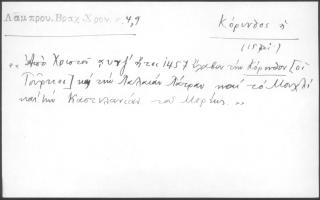 Λάμπρου. Βραχ. Χρον. σ. 4,9
Κόρινθος ἡ
(15 μεί)
"Ἀπὸ Χριστοῦ ͵αυνζʹ ἤτοι 1457 ἔλαβον τὴν Κόρινθον [οἱ
Τοῦρκοι] καὶ τὴν Παλαιὰν Πάτραν καὶ τὸ Μουχλὶ
καὶ τὴν Καστελιανιὰν τοῦ Μορέως."